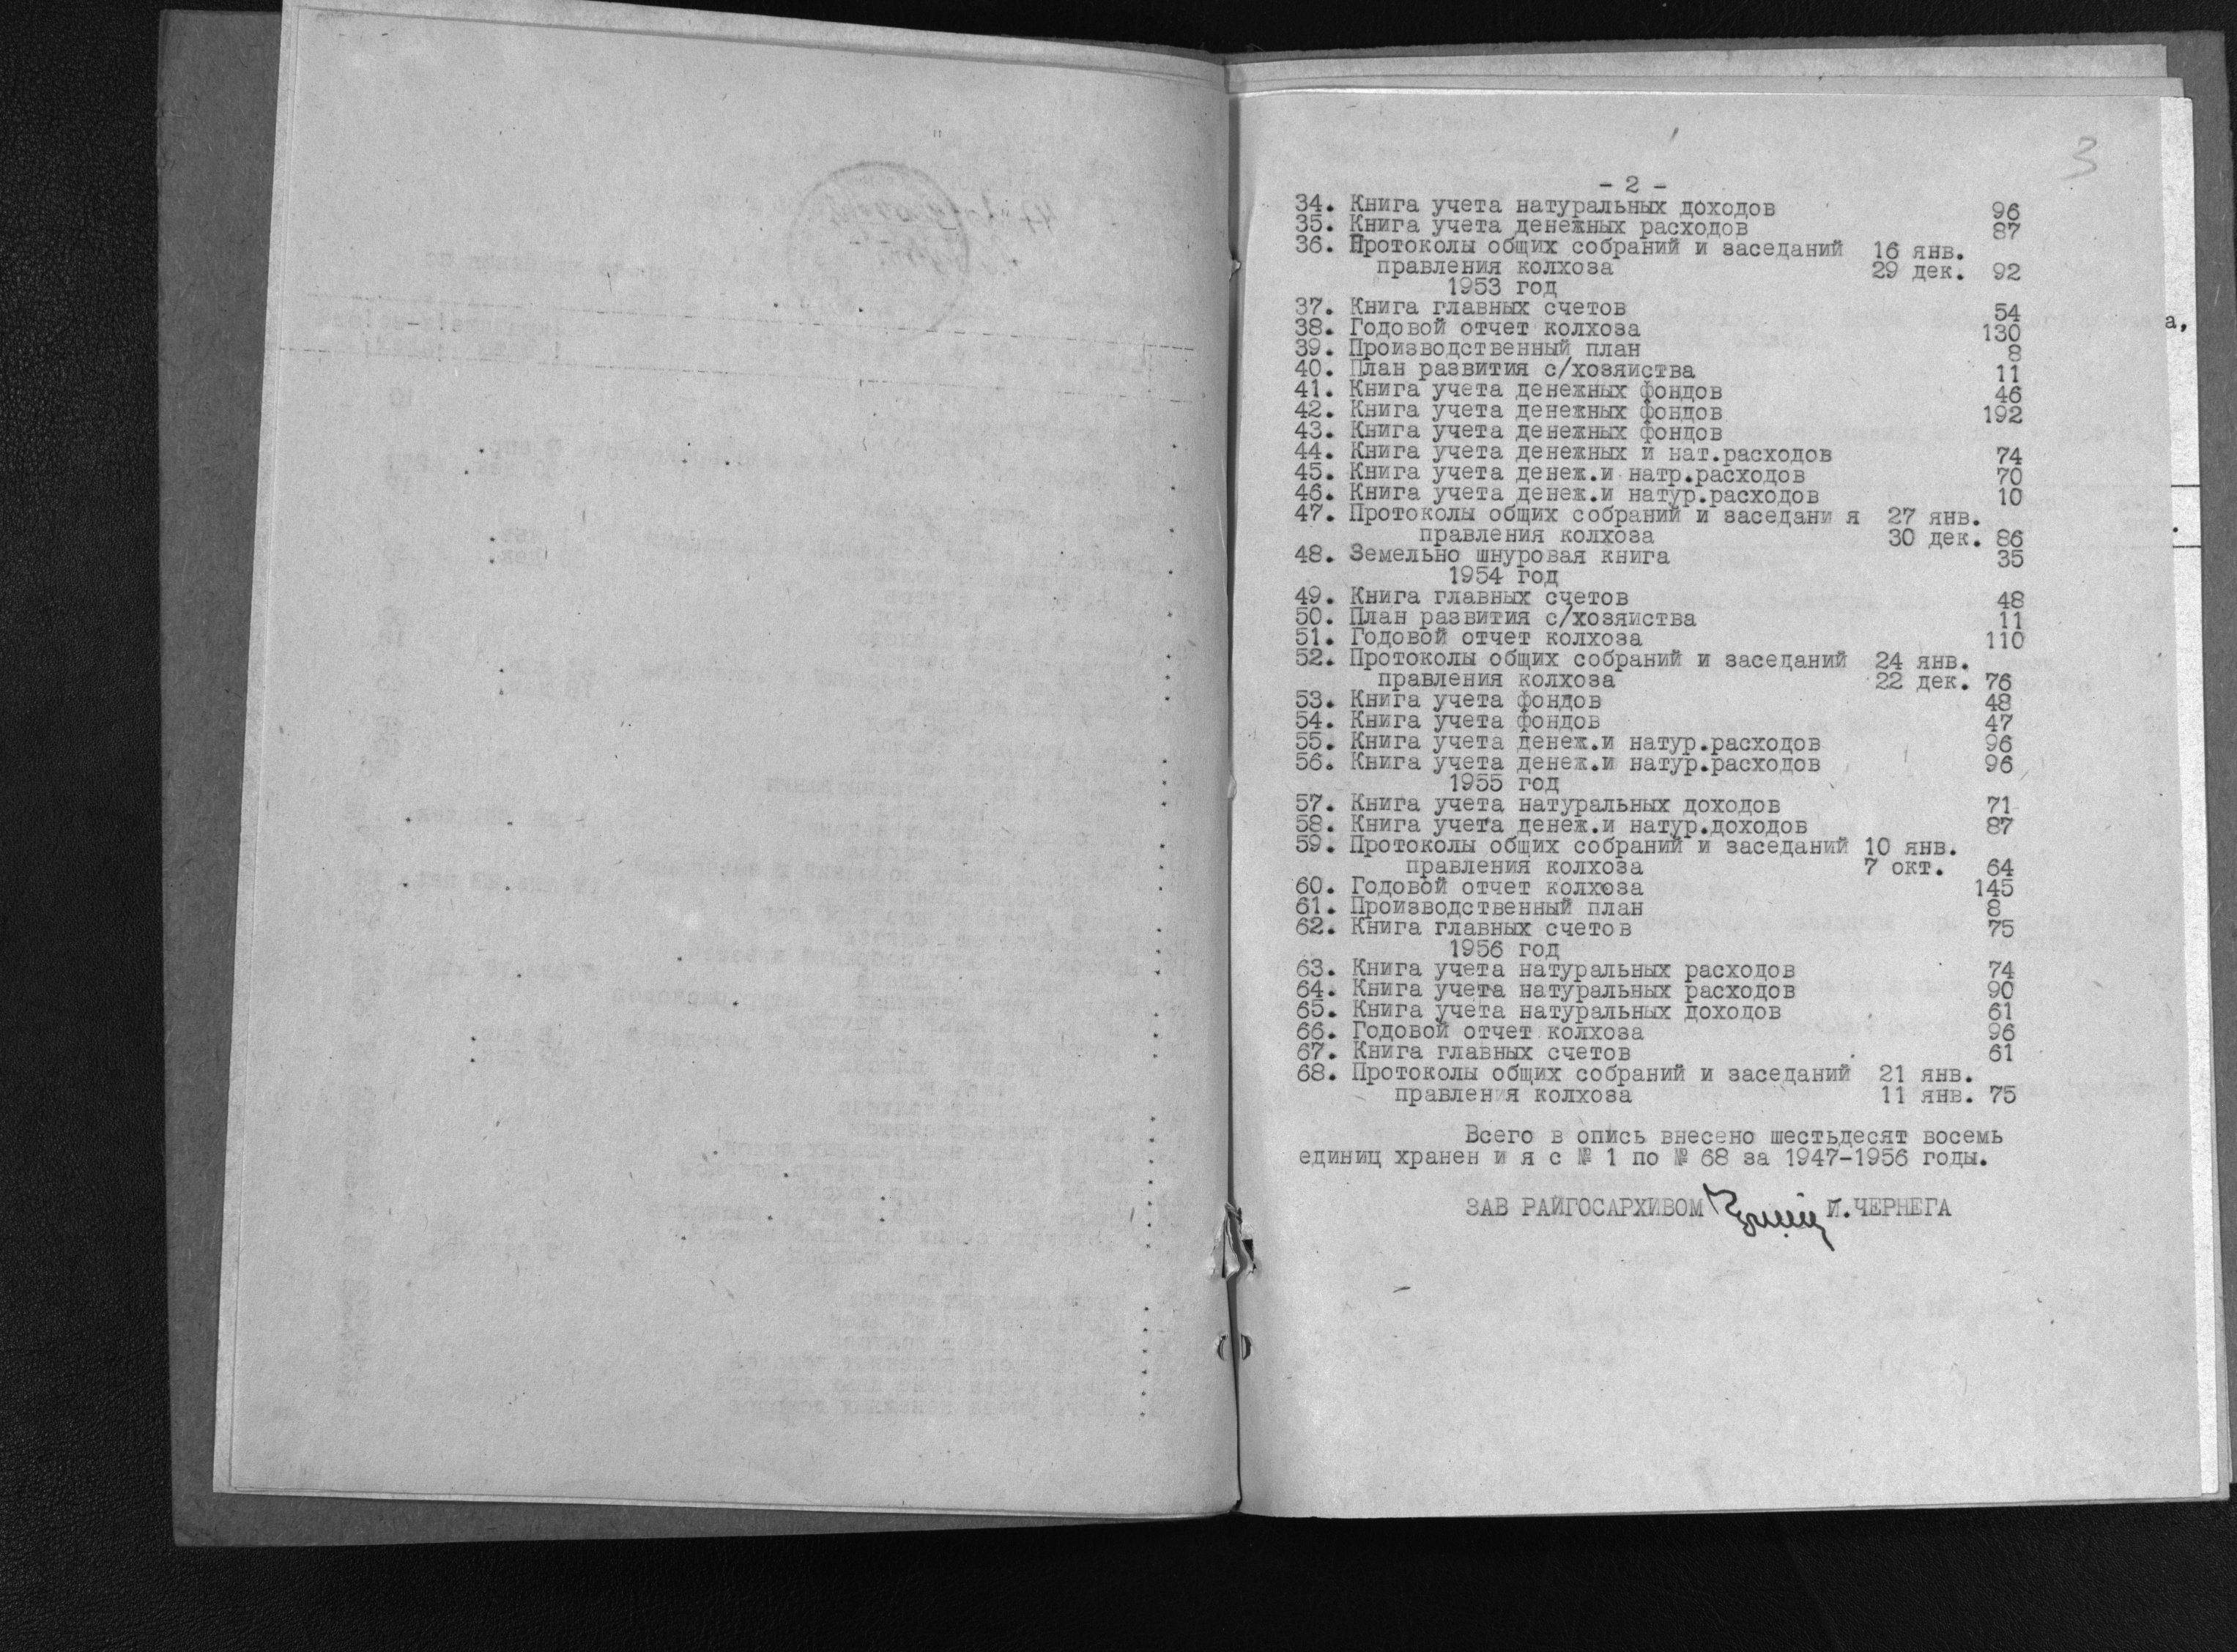 3
- 2 -
34. Книга учета натуральных доходов 96
35. Книга учета денежных расходов 87
36. Протоколы общих собраний и заседаний 16 янв.
правления колхоза 29 дек. 92
1953 год
37. Книга главных счетов 54
38. Годовой отчет колхоза 130
39. Производственный план 8
40. План развития с/хозяиства 11
41. Книга учета денежных фондов 46
42. Книга учета денежных фондов 192
43. Книга учета денежных фондов
44. Книга учета денежных и нат.расходов 74
45. Книга учета денеж.и натр.расходов 70
46. Книга учета денеж.и натур.расходов 10
47. Протоколы общих собраний и заседани я 27 янв.
правления колхоза 30 дек. 86
48. Земельно шнуровая книга 35
1954 год
49. Книга главных счетов 48
50. План развития с/хозяиства 11
51. Годовой отчет колхоза 110
52. Протоколы общих собраний и заседаний 24 янв.
правления колхоза 22 дек. 76
53. Книга учета фондов 48
54. Книга учета фондов 47
55. Книга учета денеж.и натур.расходов 96
56. Книга учета денеж.и натур.расходов 96
1955 год
57. Книга учета натуральных доходов 71
58. Книга учета денеж.и натур.доходов 87
59. Протоколы общих собраний и заседаний 10 янв.
правления колхоза 7 окт. 64
60. Годовой отчет колхоза 145
61. Производственный план 8
62. Книга главных счетов 75
1956 год
63. Книга учета натуральных расходов 74
64. Книга учета натуральных расходов 90
65. Книга учета натуральных доходов 61
66. Годовой отчет колхоза 96
67. Книга главных счетов 61
68. Протоколы общих собраний и заседаний 21 янв.
правления колхоза 11 янв. 75
Всего в опись внесено шестьдесят восемь
единиц хранен и я с № 1 по № 68 за 1947-1956 годы.
ЗАВ РАЙГОСАРХИВОМ И.ЧЕРНЕГА
а,